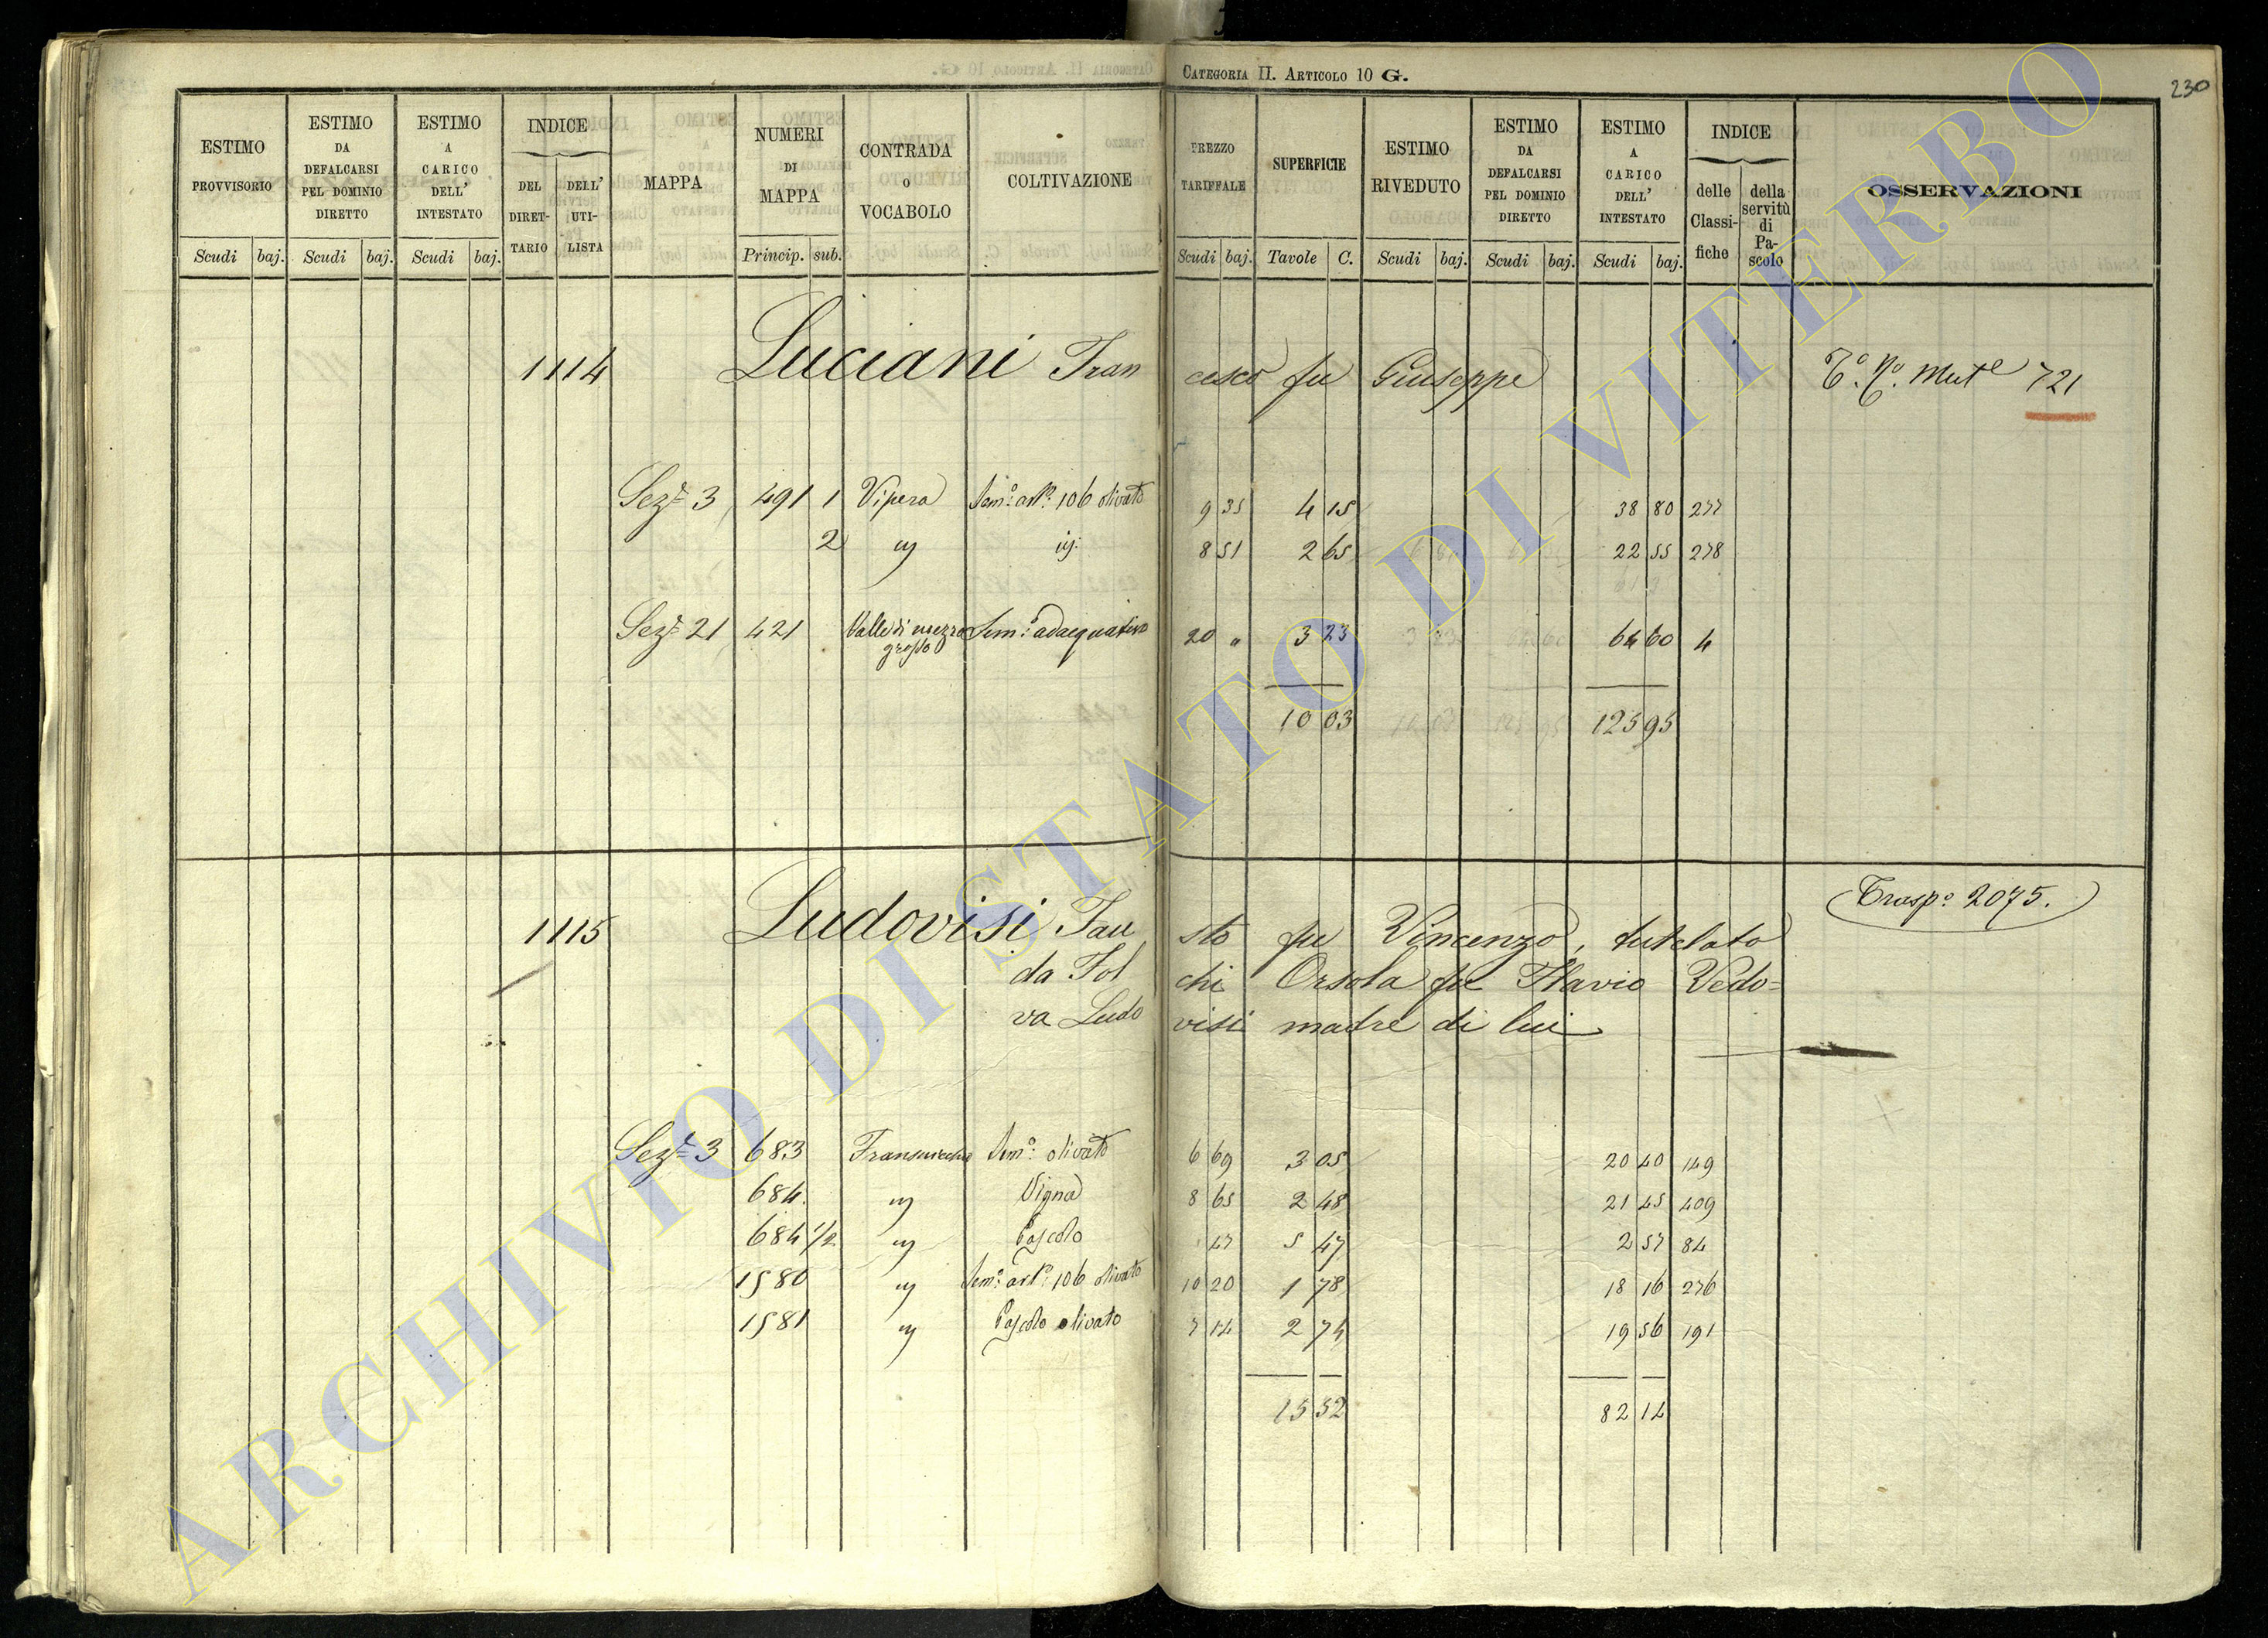 CATEGORIA II. ARTICOLO 10 G.
230
ESTIMO PROVVISORIO Scudi baj.
ESTIMO DA DEFALCARSI PEL DOMINIO DIRETTO Scudi baj.
ESTIMO A CARICO DELL' INTESTATO Scudi baj.
INDICE DEL DIRETTARIO DELL' UTILISTA
MAPPA
NUMERI DI MAPPA Princip. sub.
CONTRADA O VOCABOLO
COLTIVAZIONE
PREZZO TARIFFALE Scudi baj.
SUPERFICIE Tavole C.
ESTIMO RIVEDUTO Scudi baj.
ESTIMO DA DEFALCARSI PEL DOMINIO DIRETTO Scudi baj.
ESTIMO A CARICO DELL' INTESTATO Scudi baj.
INDICE delle Classifiche della servitù di Pascolo
OSSERVAZIONI
1114 Luciani Francesco fu Giuseppe 721
Sezᵉ 3 491 1 Vipera Semᵒ artᵒ 106 olivato 9 35 4 15 38 80 277
2 8 51 2 65 22 55 278
Sezᵉ 21 421 Valle di mezzo grosso Semᵒ adaequativo 20 " 3 23 64 60 4
10 03 125 95
1115 Ludovisi Fausto fu Vincenzo, tutelato Traspᵒ 2075.
da Folchi Orsola fu Flavio Vedo=
va Ludovisi madre di lui
Sezᵉ 3 683 Semᵒ olivato 6 69 3 05 20 40 149
684 Vigna 8 65 2 48 21 45 409
684 1/2 Pascolo 47 5 47 2 57 84
1580 Semᵒ artᵒ 106 olivato 10 20 1 78 18 16 276
1581 Pascolo olivato 7 14 2 74 19 56 191
15 52 82 14
ARCHIVIO DI STATO DI VITERBO